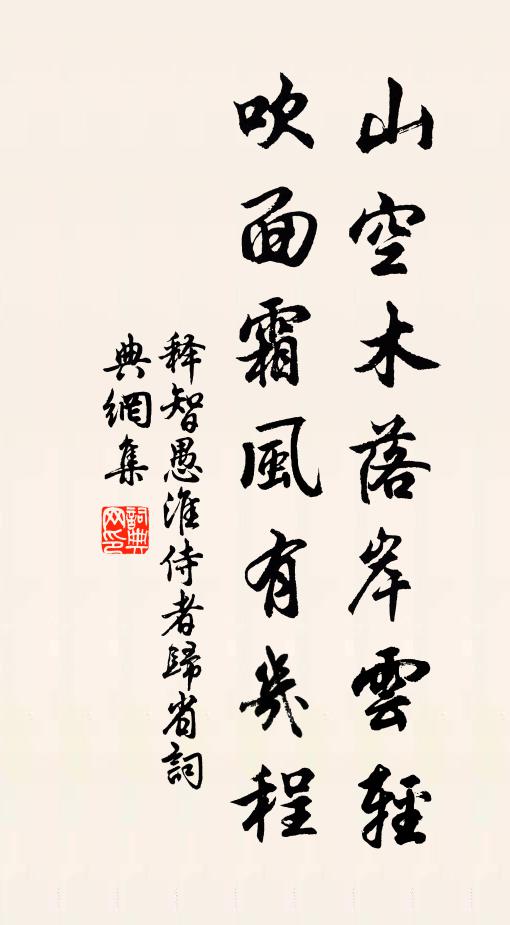 山空木落岸雲輕
吹面霜風有幾程
释智愚淮侍者歸省詞
典網集
詞典网印